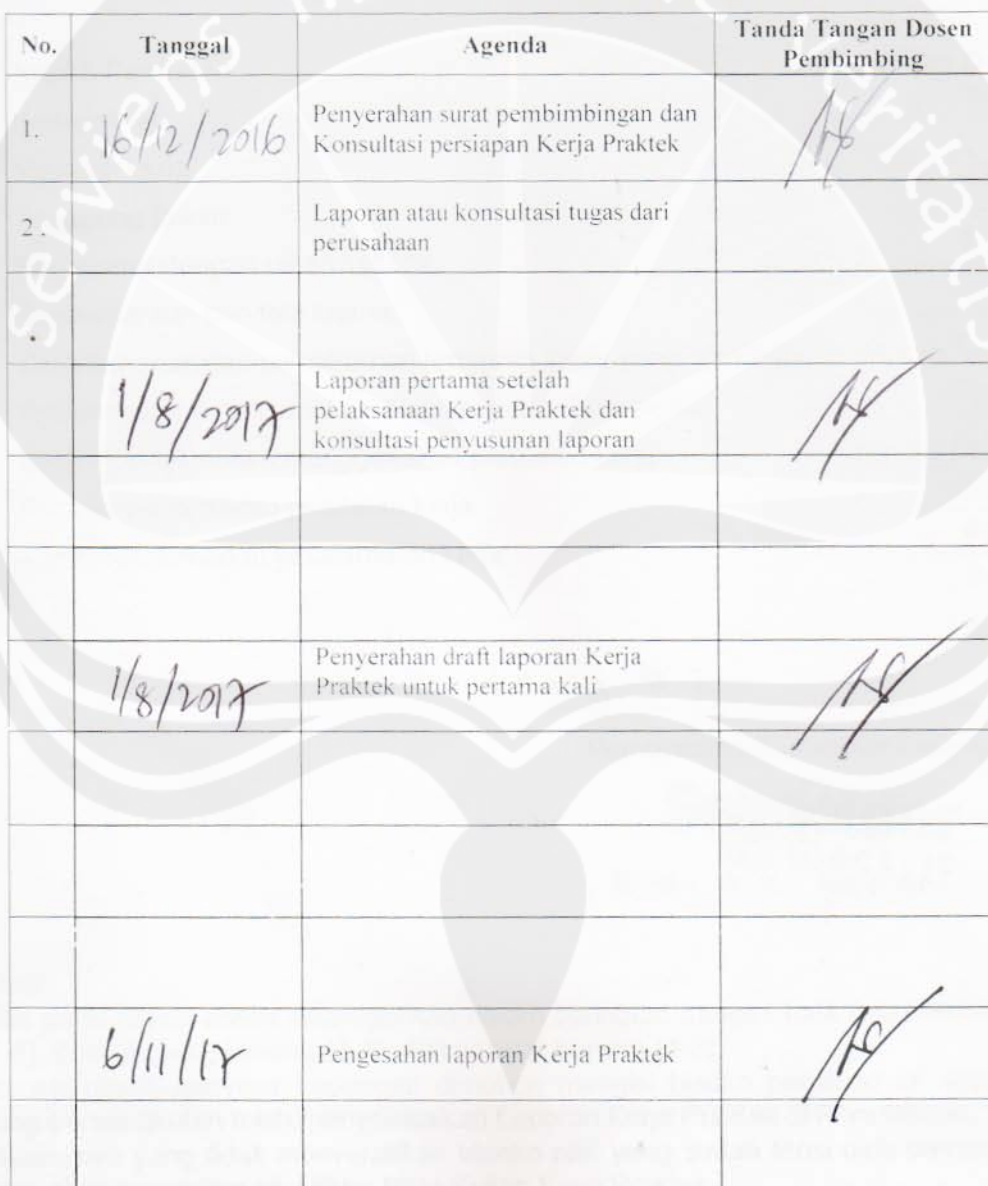 No.
Tanggal
Agenda
Tanda Tangan Dosen
Pembimbing
1.
16/12/2016
Penyerahan surat pembimbingan dan
Konsultasi persiapan Kerja Praktek
2.
Laporan atau konsultasi tugas dari
perusahaan
.
1/8/2017
Laporan pertama setelah
pelaksanaan Kerja Praktek dan
konsultasi penyusunan laporan
1/8/2017
Penyerahan draft laporan Kerja
Praktek untuk pertama kali
6/11/17
Pengesahan laporan Kerja Praktek
serviens in
veritatis